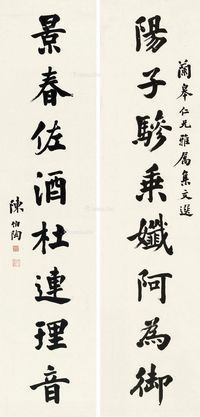 蘭皋仁兄雅属集文選
陽子驂乗孅阿為御
景春佐酒杜連理音
陳伯陶